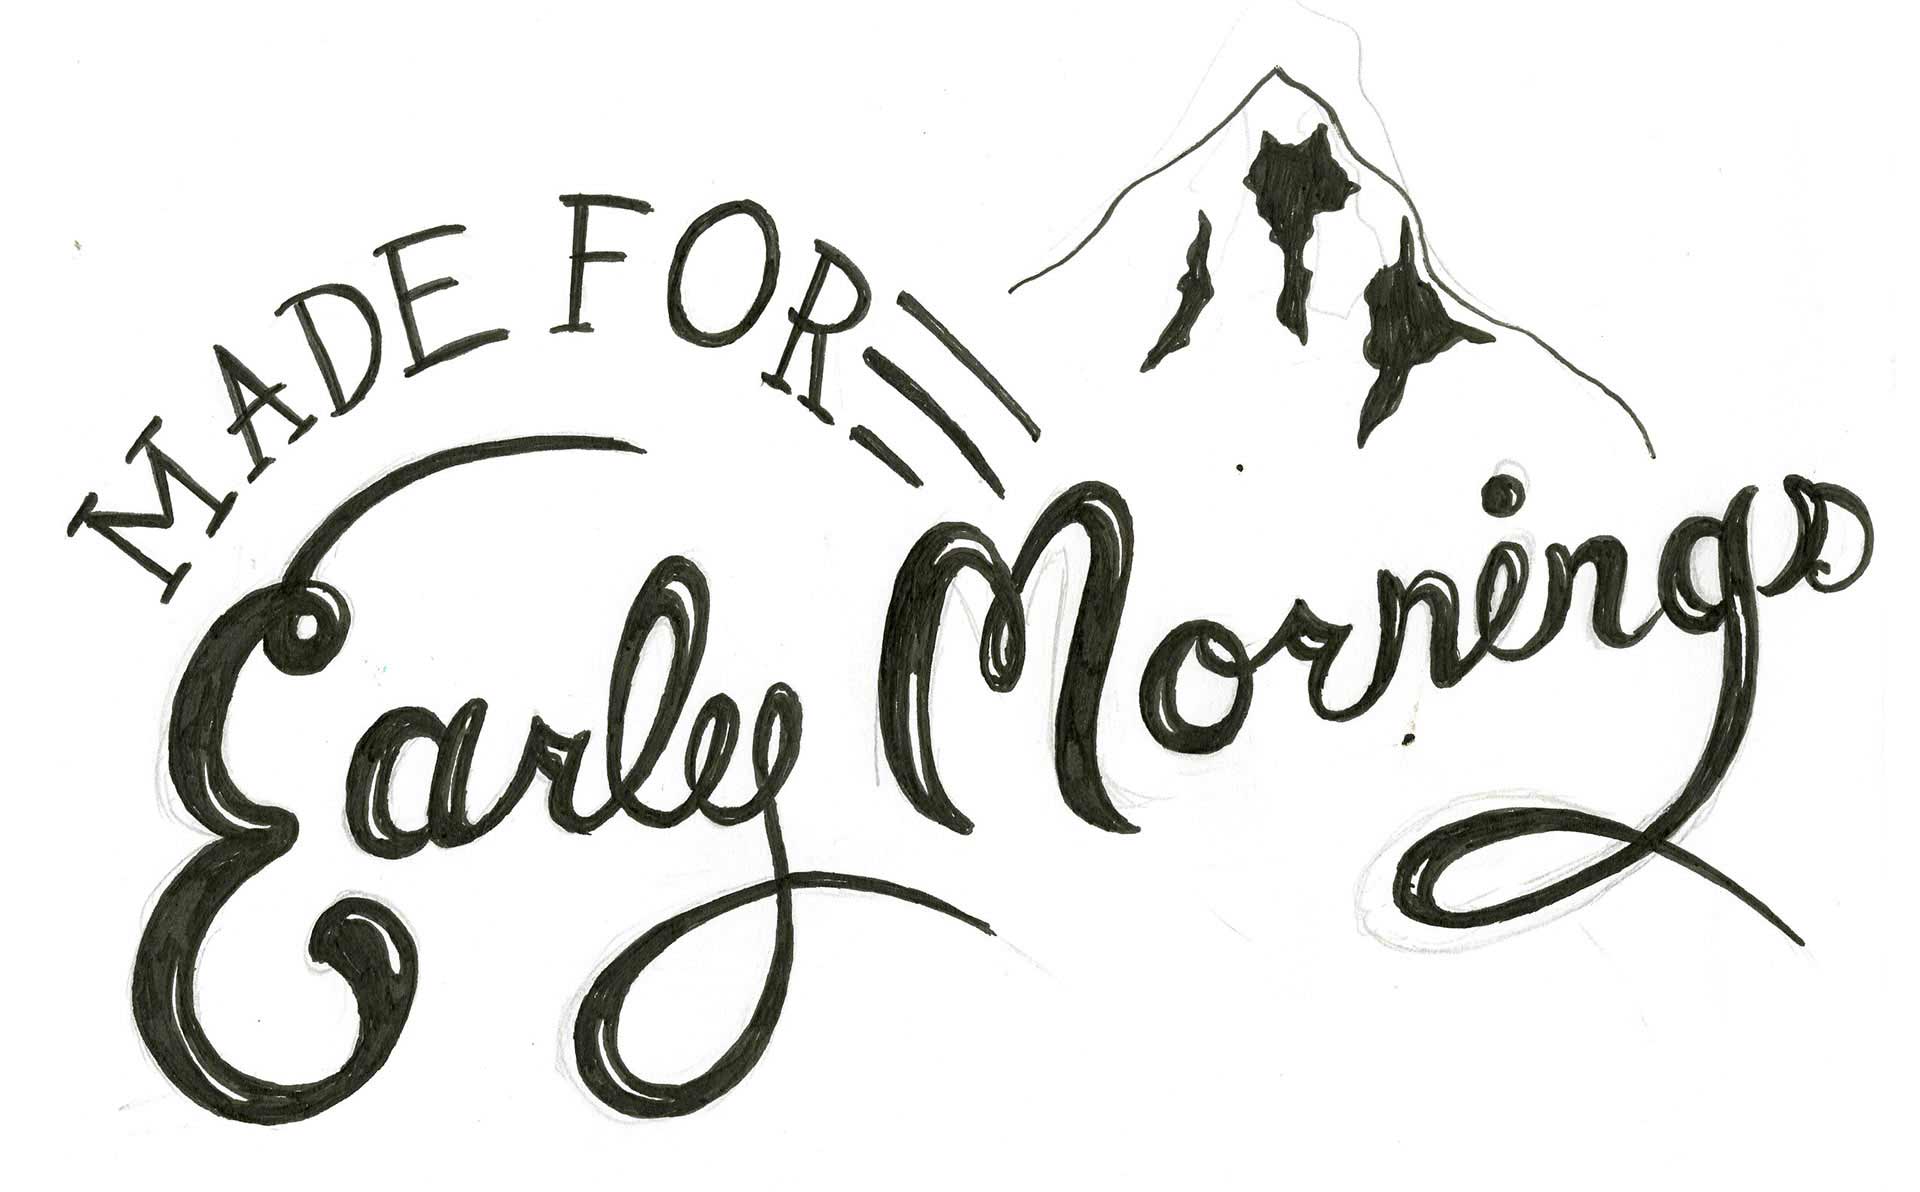 MADE FOR
Early Mornings